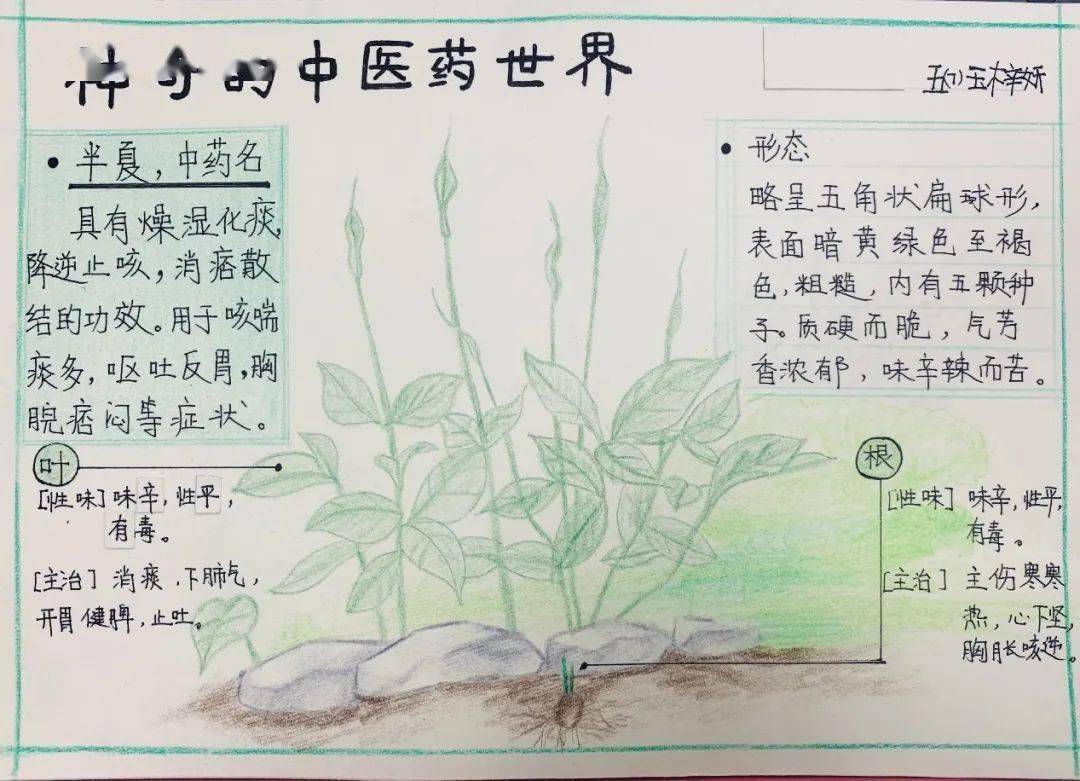 神奇的中医药世界
五(1)王梓妍
• 半夏，中药名
具有燥湿化痰，
降逆止咳，消痞散
结的功效。用于咳喘
痰多，呕吐反胃，胸
脘痞闷等症状。
• 形态
略呈五角状扁球形，
表面暗黄绿色至褐
色，粗糙，内有五颗种
子。质硬而脆，气芳
香浓郁，味辛辣而苦。
叶
[性味] 味辛，性平，
有毒。
[主治] 消痰，下肺气，
开胃健脾，止吐。
根
[性味] 味辛，性平，
有毒。
[主治] 主伤寒寒
热，心下坚，
胸胀咳逆。